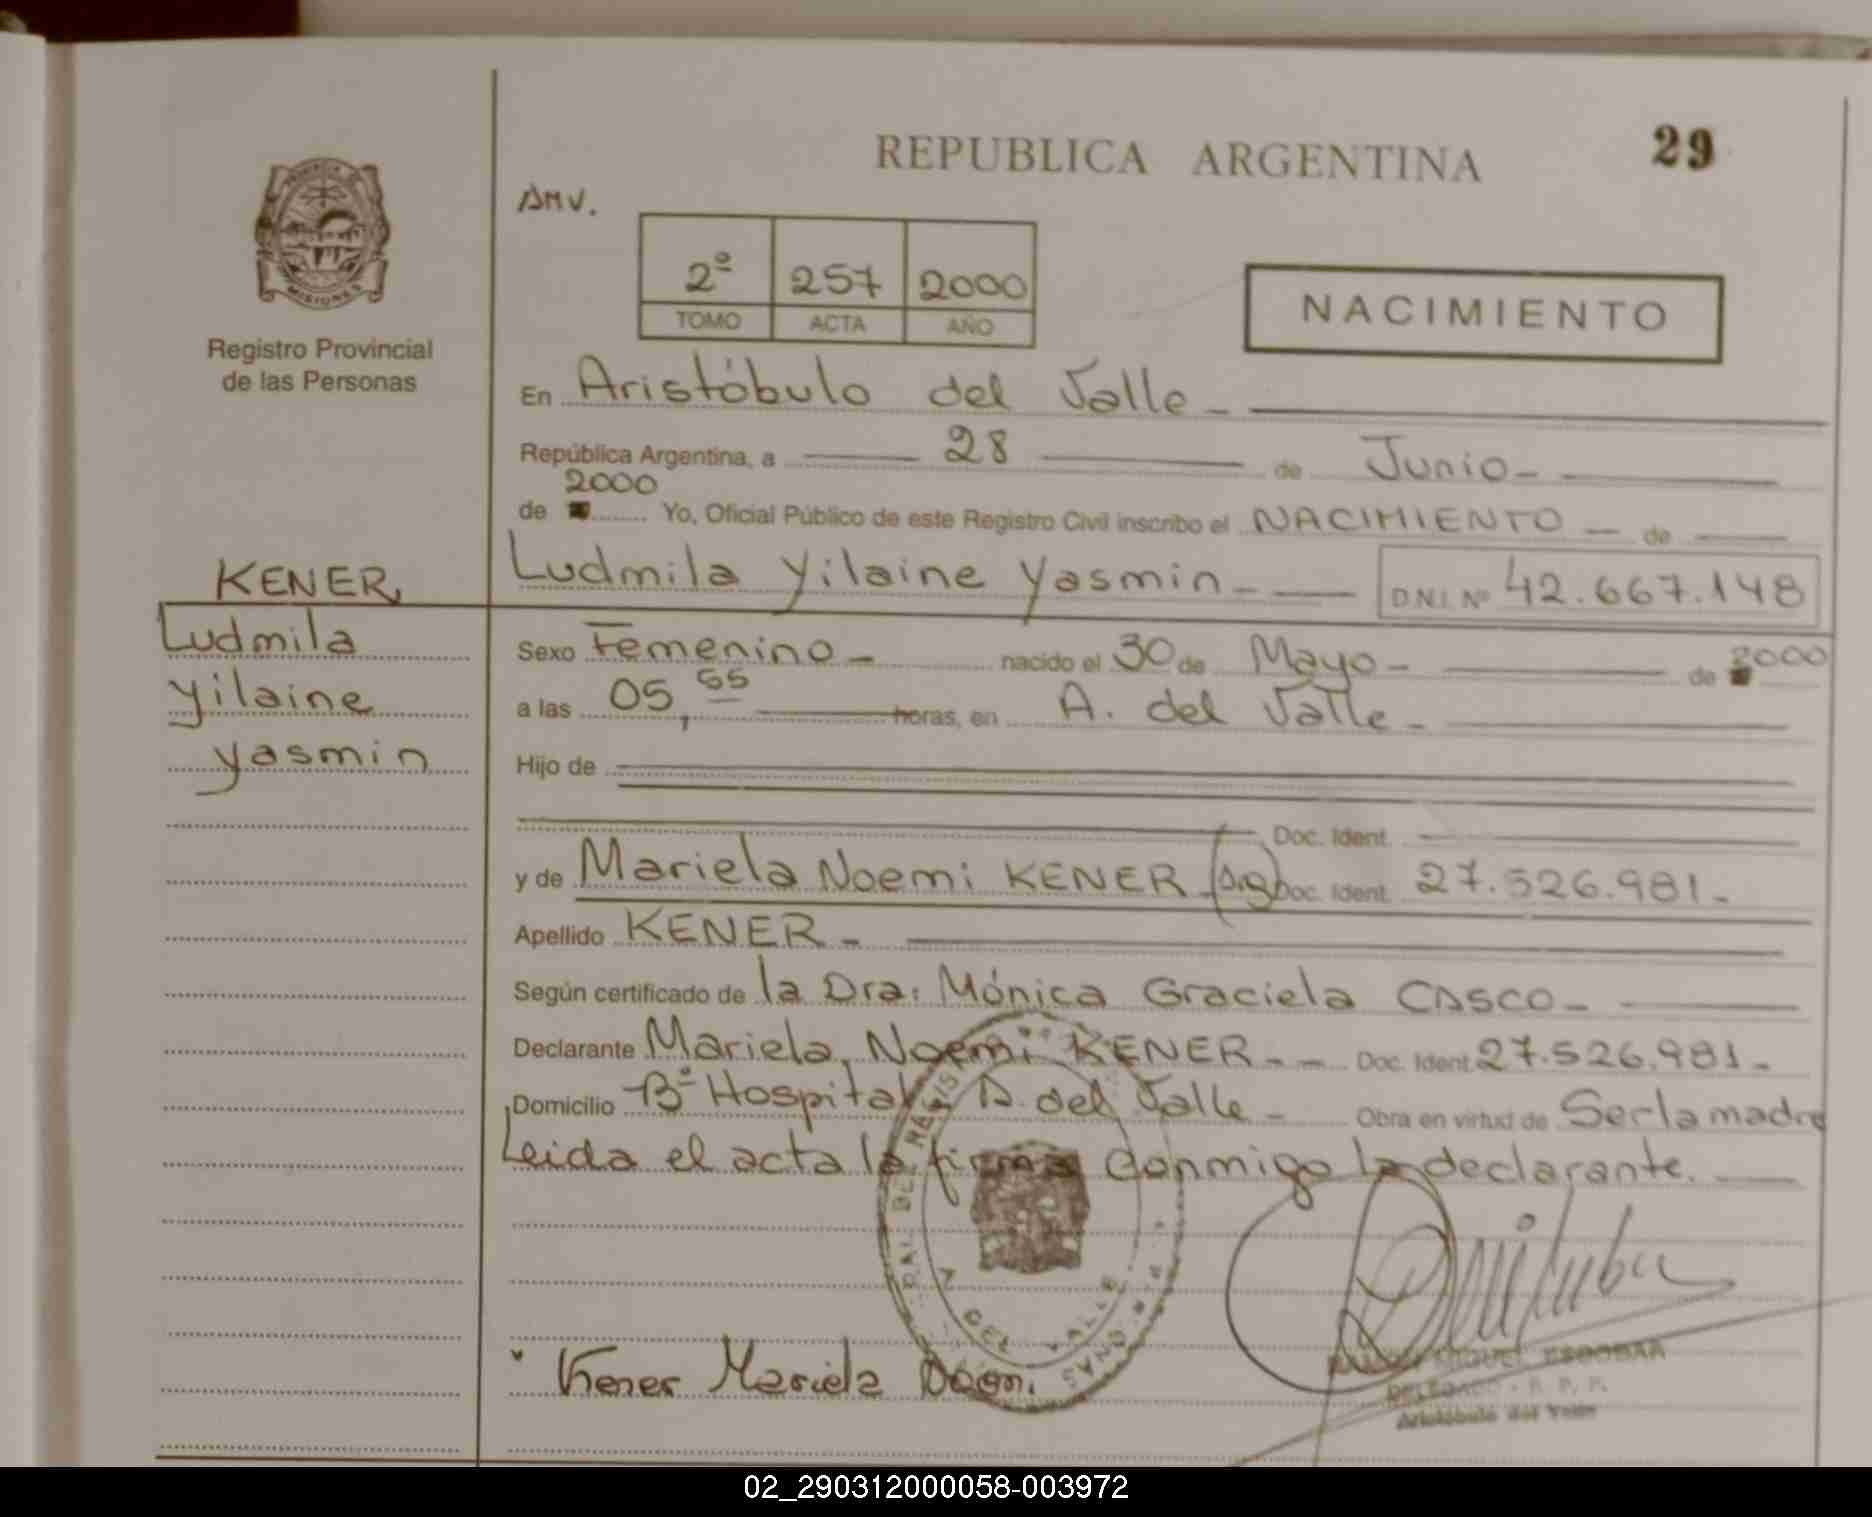 REPUBLICA ARGENTINA
29
AMV.
2º 257 2000
TOMO ACTA AÑO
NACIMIENTO
MISIONES
Registro Provincial
de las Personas
En Aristóbulo del Valle -
República Argentina, a 28 de Junio -
2000
de Yo, Oficial Público de este Registro Civil inscribo el NACIMIENTO - de
Ludmila Yilaine Yasmin - D.N.I. Nº 42.667.148
KENER,
Ludmila
Yilaine
Yasmin
Sexo Femenino - nacido el 30 de Mayo - de 2000
a las 05,55 horas, en A. del Valle -
Hijo de
Doc. Ident.
y de Mariela Noemi KENER - (Arg) Doc. Ident. 27.526.981 -
Apellido KENER -
Según certificado de la Dra: Mónica Graciela CASCO -
Declarante Mariela, Noemi KENER - - Doc. Ident. 27.526.981 -
Domicilio Bº Hospital - A. del Valle - Obra en virtud de Ser la madre
Leida el acta la firma conmigo la declarante.
A. DEL VALLE
Kener Mariela
MIGUEL ESCOBAR
DELEGADO - R. P. P.
Aristóbulo del Valle
02_290312000058-003972